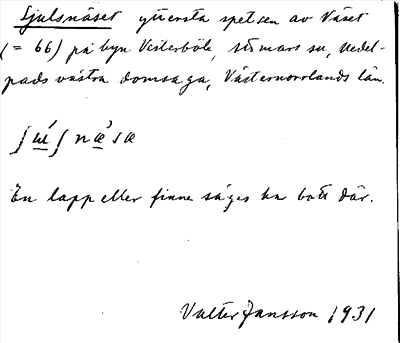 Sjulsnäset yttersta spetsen av Näset
(= 66) på byn Västerböle, Stömars sn, Medel-
pads västra domsaga, Västernorrlands län.
En lapp eller finne säges ha bott där.
Valter Jansson 1931